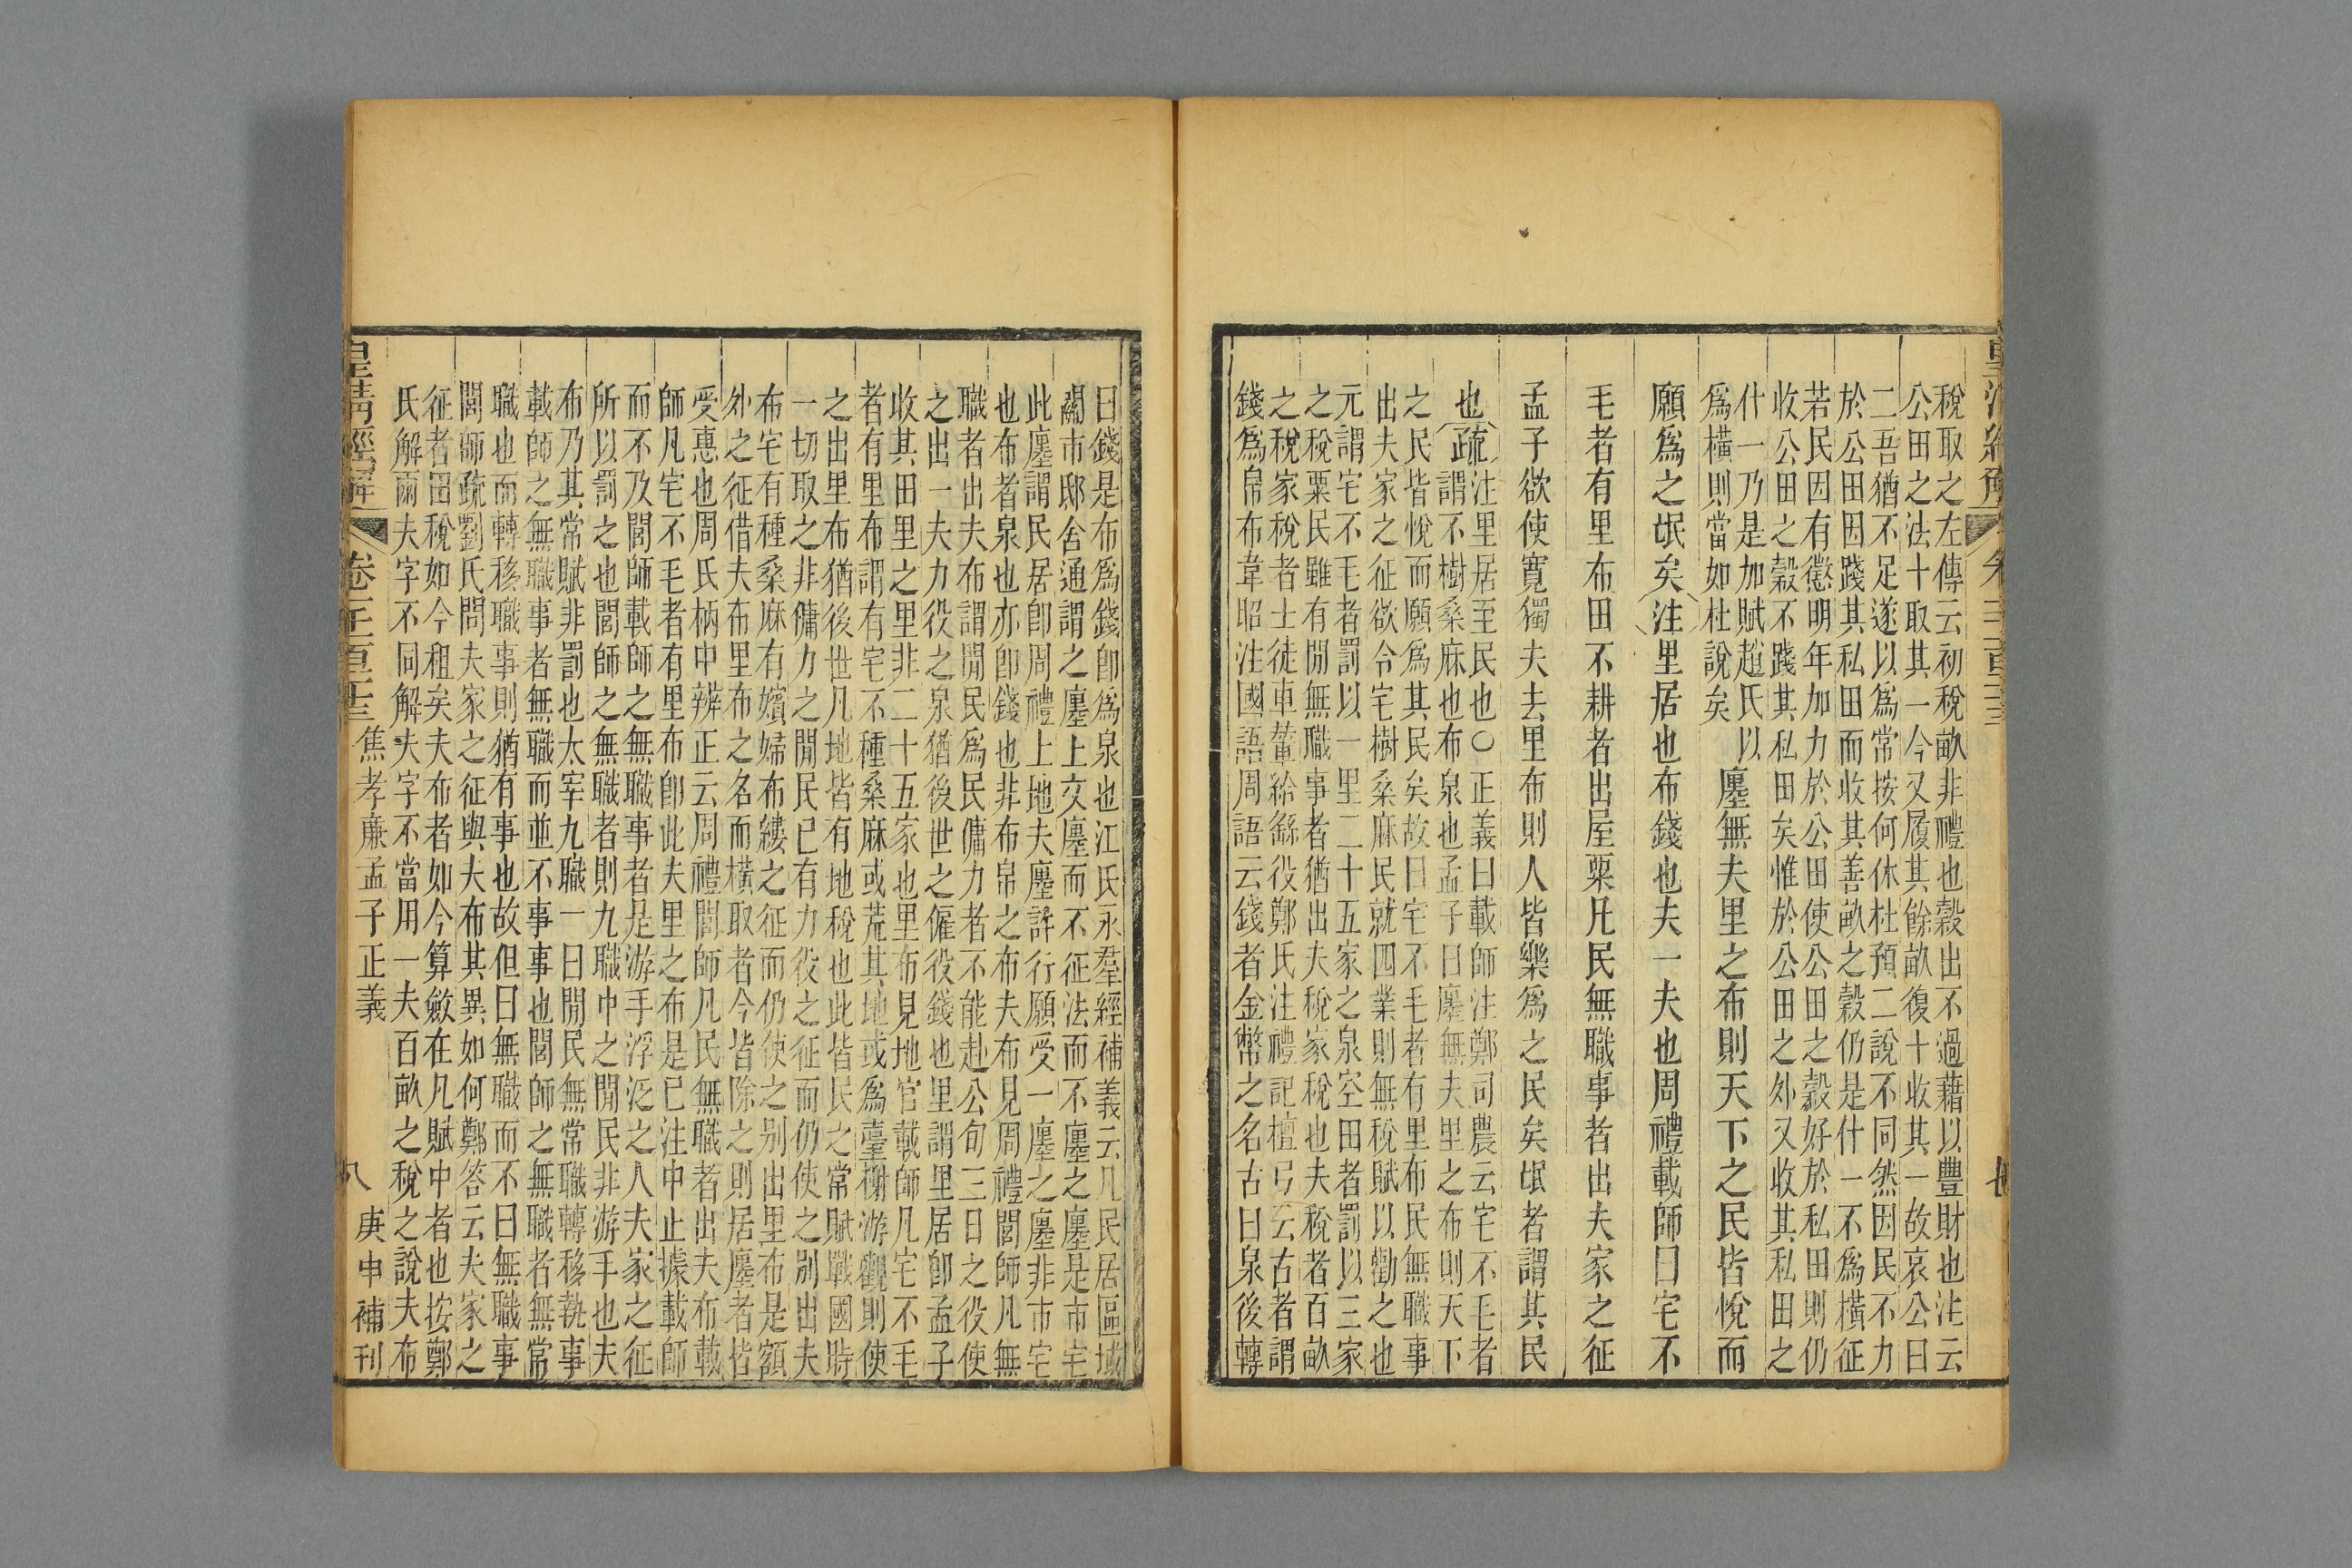 稅取之左傳云初稅畝非禮也穀出不過藉以豐財也注云
公田之法十取其一今又履其餘畝復十收其一故哀公曰
二吾猶不足遂以爲常按何休杜預二說不同然因民不力
於公田因踐其私田而收其善畝之穀仍是什一不爲橫征
若民因有懲明年加力於公田使公田之穀好於私田則仍
收公田之穀不踐其私田矣惟於公田之外又收其私田之
什一乃是加賦趙氏以
爲橫則當如杜說矣
廛無夫里之布則天下之民皆悅而
願爲之氓矣注里居也布錢也夫一夫也周禮載師曰宅不
毛者有里布田不耕者出屋粟凡民無職事者出夫家之征
孟子欲使寬獨夫去里布則人皆樂爲之民矣氓者謂其民
也疏
注里居至民也○正義曰載師注鄭司農云宅不毛者
謂不樹桑麻也布泉也孟子曰廛無夫里之布則天下
之民皆悅而願爲其民矣故曰宅不毛者有里布民無職事
出夫家之征欲令宅樹桑麻民就四業則無稅賦以勸之也
元謂宅不毛者罰以一里二十五家之泉空田者罰以三家
之稅粟民雖有閒無職事者猶出夫稅家稅也夫稅者百畝
之稅家稅者士徒車輦給繇役鄭氏注禮記檀弓云古者謂
錢爲帛布韋昭注國語周語云錢者金幣之名古曰泉後轉
曰錢是布爲錢卽爲泉也江氏永羣經補義云凡民居區域
關市邸舍通謂之廛上文廛而不征法而不廛之廛是市宅
此廛謂民居卽周禮上地夫廛許行願受一廛之廛非市宅
也布者泉也亦卽錢也非布帛之布夫布見周禮閭師凡無
職者出夫布謂閒民爲民傭力者不能赴公旬三日之役使
之出一夫力役之泉猶後世之僱役錢也里謂里居卽孟子
收其田里之里非二十五家也里布見地官載師凡宅不毛
者有里布謂有宅不種桑麻或荒其地或爲臺榭游觀則使
之出里布猶後世凡地皆有地稅也此皆民之常賦戰國時
一切取之非傭力之閒民已有力役之征而仍使之別出夫
布宅有種桑麻有嬪婦布縷之征而仍使之別出里布是額
外之征借夫布里布之名而橫取者今皆除之則居廛者皆
受惠也周氏柄中辨正云周禮閭師凡民無職者出夫布載
師凡宅不毛者有里布卽此夫里之布是已注中止據載師
而不及閭師載師之無職事者是游手浮泛之人夫家之征
所以罰之也閭師之無職者則九職中之閒民非游手也夫
布乃其常賦非罰也太宰九職一曰閒民無常職轉移執事
載師之無職事者無職而並不事事也閭師之無職者無常
職也而轉移職事則猶有事也故但曰無職而不曰無職事
閭師疏劉氏問夫家之征與夫布其異如何鄭荅云夫家之
征者田稅如今租矣夫布者如今算斂在凡賦中者也按鄭
氏解兩夫字不同解夫字不當用一夫百畝之稅之說夫布
皇清經解 卷 焦孝廉孟子正義 八 庚申補刊